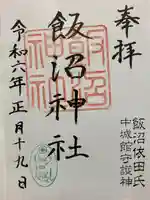 奉拝
飯沼依田氏
中城館守護神
飯沼神社
令和六年正月十九日